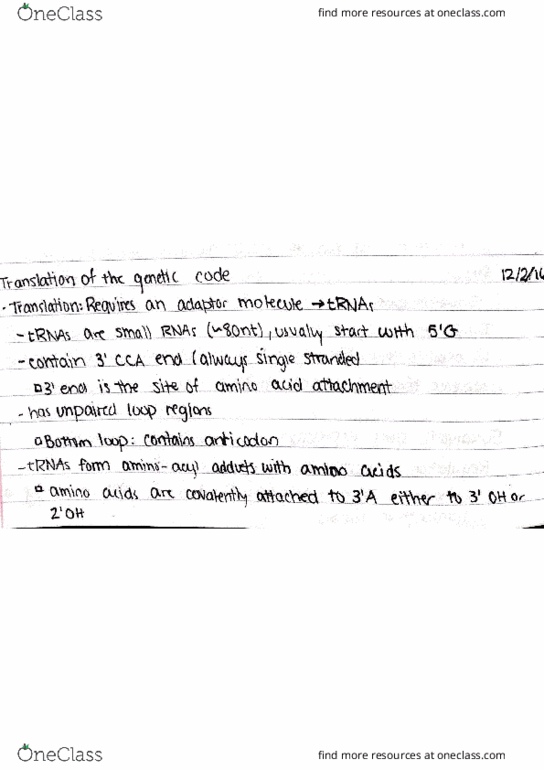 OneClass find more resources at oneclass.com
Translation of the genetic code 12/2/16
· Translation: Requires an adaptor molecule → tRNAs
- tRNAs are small RNAs (~80nt), usually start with 5'G
- contain 3' CCA end (always single stranded
▫ 3' end is the site of amino acid attachment
- has unpaired loop regions
▫ Bottom loop: contains anticodon
- tRNAs form amino-acyl adducts with amino acids
▫ amino acids are covalently attached to 3'A either to 3' OH or
2'OH
OneClass find more resources at oneclass.com